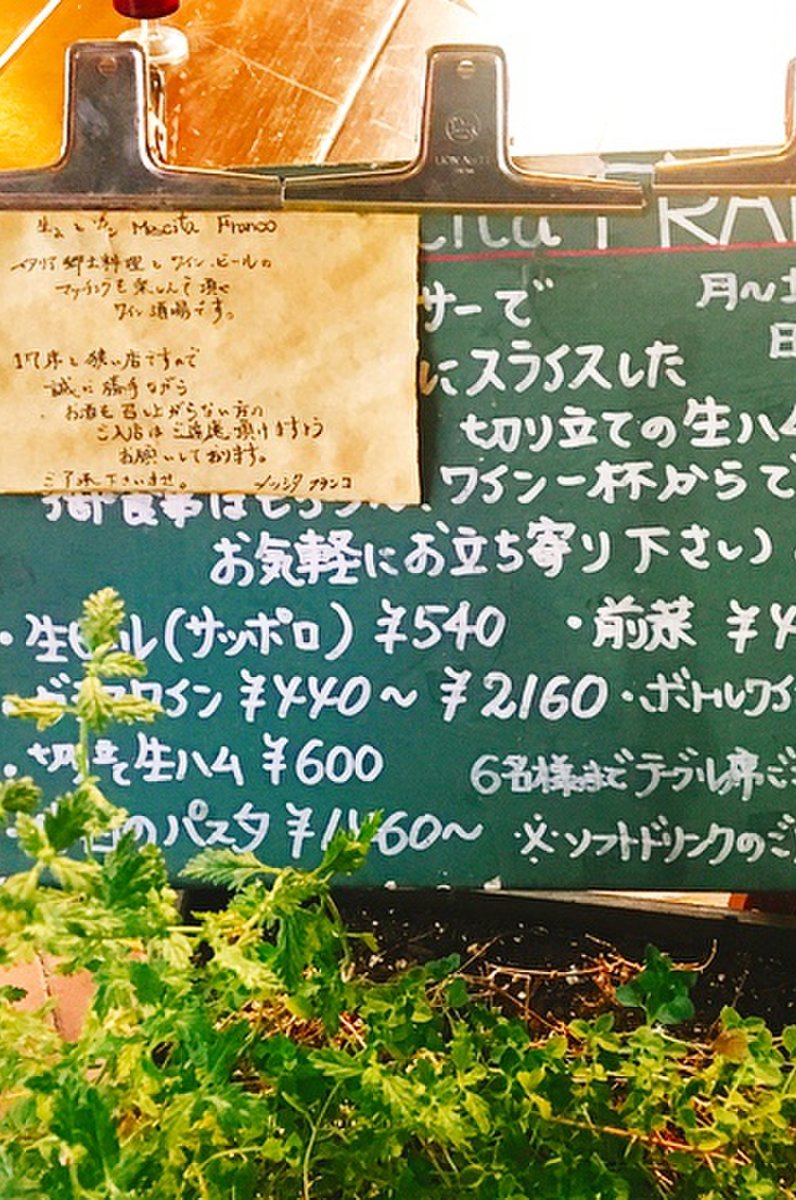 生ハムとワイン Mescita Franco
イタリア郷土料理とワイン、ビールの
マッチングを楽しんで頂く
ワイン酒場です。
17席と狭い店ですので
誠に勝手ながら
お酒を召し上がらない方の
ご入店はご遠慮頂けますよう
お願いしております。
ご了承下さいませ。 メッシタ フランコ
LION
サーで
月〜土
日
にスライスした
切り立ての生ハム
ワイン一杯からで
お気軽にお立ち寄り下さい
・生ビール(サッポロ) ¥540 ・前菜 ¥4
・グラスワイン ¥440〜¥2160 ・ボトルワイン
・切立て生ハム ¥600
6名様までテーブル席ご
のパスタ ¥1460〜 ※ソフトドリンクのご